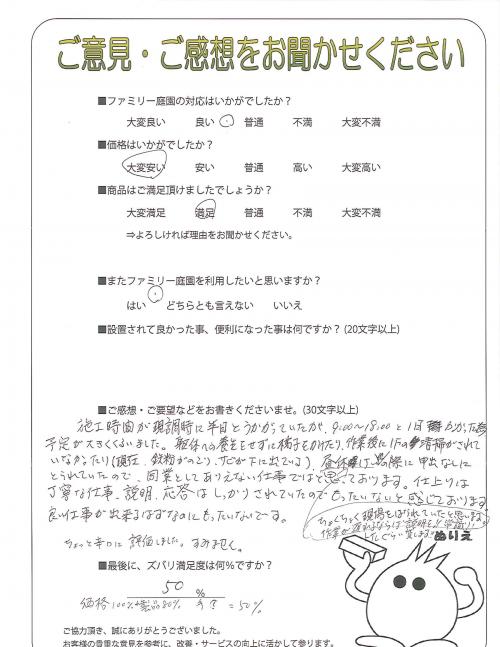 ご意見・ご感想をお聞かせください
■ファミリー庭園の対応はいかがでしたか？
大変良い 良い 普通 不満 大変不満
■価格はいかがでしたか？
大変安い 安い 普通 高い 大変高い
■商品はご満足頂けましたでしょうか？
大変満足 満足 普通 不満 大変不満
⇒よろしければ理由をお聞かせください。
■またファミリー庭園を利用したいと思いますか？
はい どちらとも言えない いいえ
■設置されて良かった事、便利になった事は何ですか？（20文字以上）
■ご感想・ご要望などをお書きくださいませ。（30文字以上）
施工時間が現調時に半日とうかがっていたが、9:00〜18:00と1日かかった為
予定が大きくくるいました。躯体への養生をせずに梯子をかけたり、作業後に1Fの清掃がされ
ていなかったり(現在、鉄粉が
とられていたので、同業としてありえない仕事ではと思っております。仕上りは
丁寧な仕事、説明、応答はしっかりされていたのでもったいないと感じております。
良い仕事が出来るはずなのにもったいないでーす。
ちょくちょく現場をしばられていたと思いますが
作業が遅れるならば説明を!!
ちょっと辛口に評価しました。すみません。
ぬりえ
■最後に、ズバリ満足度は何％ですか？
50 %
価格100% 製品80% = 50%
ご協力頂き、誠にありがとうございました。
お客様の貴重な意見を参考に、改善・サービスの向上に活かして参ります。